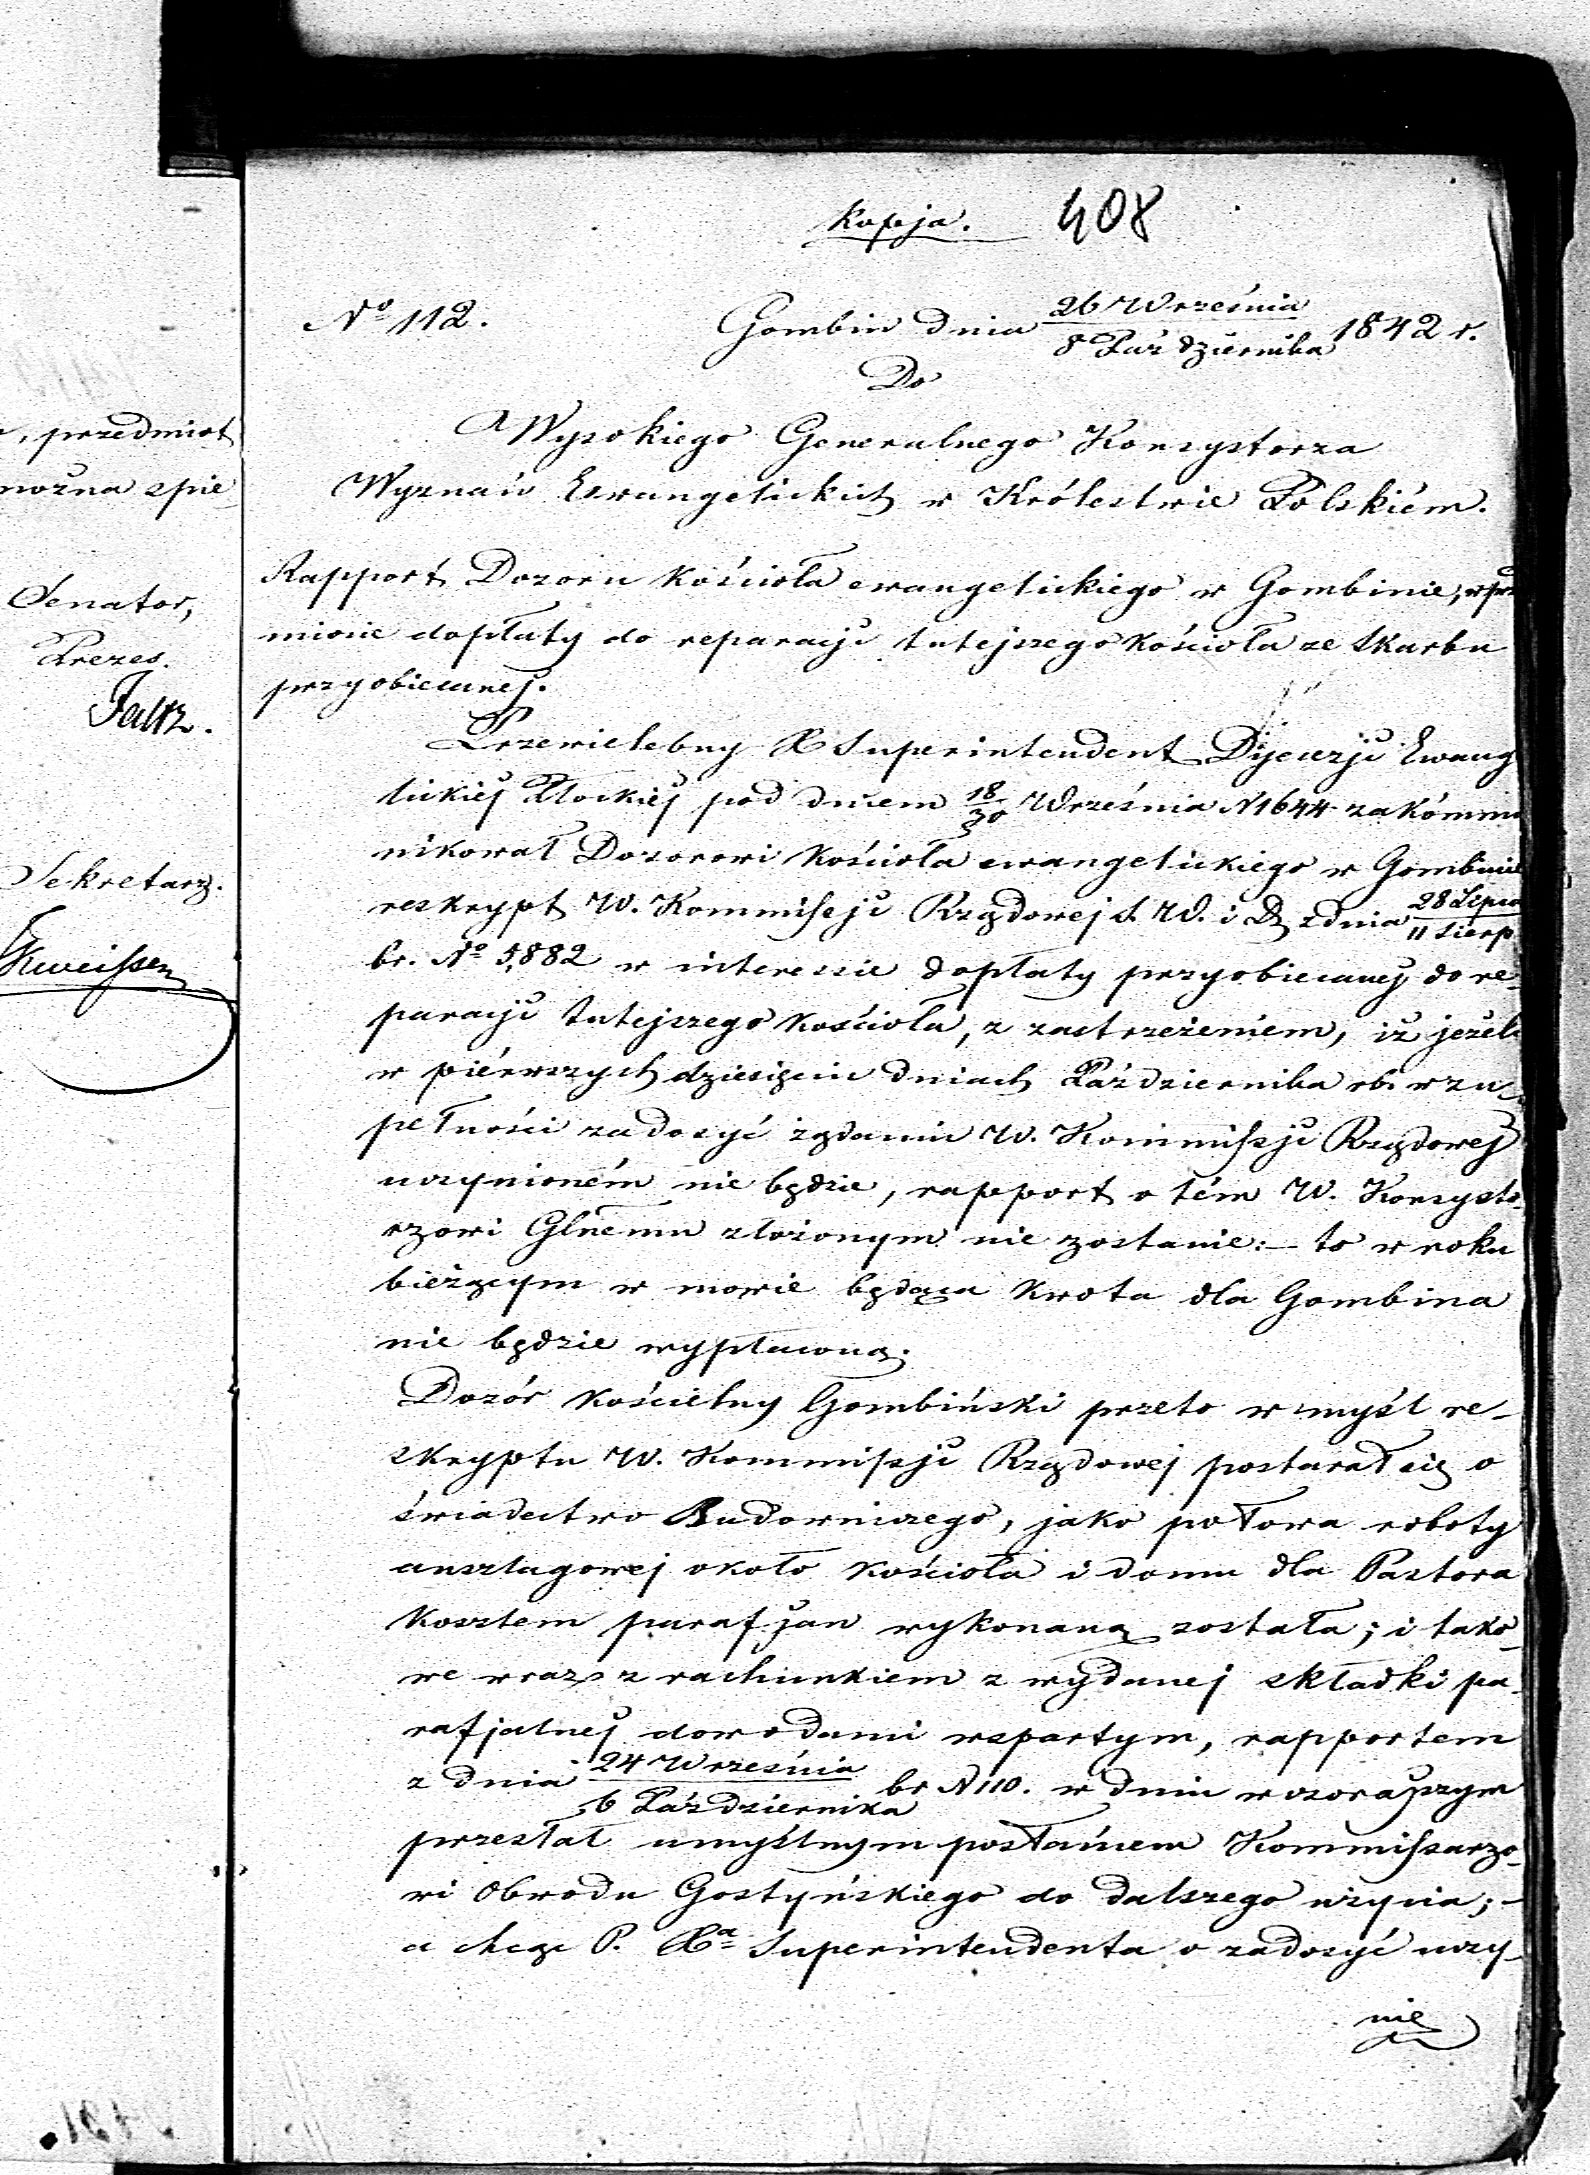 , przedmiot
można spie
Senator,
Prezes.
Sekretarz.
Kopja. 408
No 112. Gombin dnia 26 Września / 8 Października 1842 r.
Do
Wysokiego Generalnego Konsystorza
Wyznań Ewangelickich w Królestwie Polskiém.
Rapport Dozoru Kościoła ewangelickiego w Gombinie,
miocie dopłaty do reparacji tutejszego Kościoła ze Skarbu
przyobiecanej.
Przewielebny X Superintendent Dijecezji Ewang
lickiej Płockiej pod dniem 18/30 Września N 1644 zakommu
nikował Dozorowi Kościoła ewangelickiego w Gombinie
reskrypt W. Kommissji Rządowej S. W. i D. z dnia 28 Lipca / 11 Sierp.
br. No 5,882 w interessie dopłaty przyobiecanej do re-
paracji tutejszego Kościoła, z zastrzeżeniem, iż jeżeli
w piérwszych dziesięciu dniach Października rb. w zu-
pełności zadosyć żądaniu W. Kommissji Rządowej
uczynioném nie będzie, rapport o tém W. Konsysto-
rzowi Glnemu złożonym nie zostanie:- to w roku
bieżącym w mowie będąca Kwota dla Gombina
nie będzie wypłaconą.
Dozór Kościelny Gombiński przeto w myśl re-
skryptu W. Kommissji Rządowej postarał się o
świadectwo Budowniczego, jako połowa roboty
anszlagowej około Kościoła i domu dla Pastora
Kosztem parafjan wykonaną została; i tako-
we wraz z rachunkiem z wydanej składki pa-
rafjalnej dowodami wspartym, rapportem
z dnia 24 Września / 6 Października br N 110. w dniu wczorajszym
przesłał umyślnym posłańcem Kommissarzo-
wi Obwodu Gostyńskiego do dalszego użycia;-
a chcąc P. Xa Superintendenta o zadosyć uczy-
nie